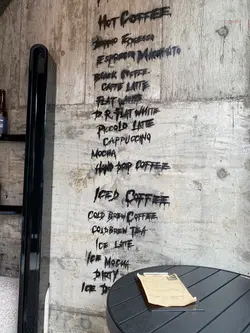 Hot Coffee
Espresso
Espresso Macchiato
Black Coffee
Caffe Latte
Flat White
D.R. Flat White
Piccolo Latte
Cappuccino
Mocha
Hand Drip Coffee
Iced Coffee
Cold Brew Coffee
Cold Brew Tea
Ice Latte
Ice Mocha
Dirty
Ice